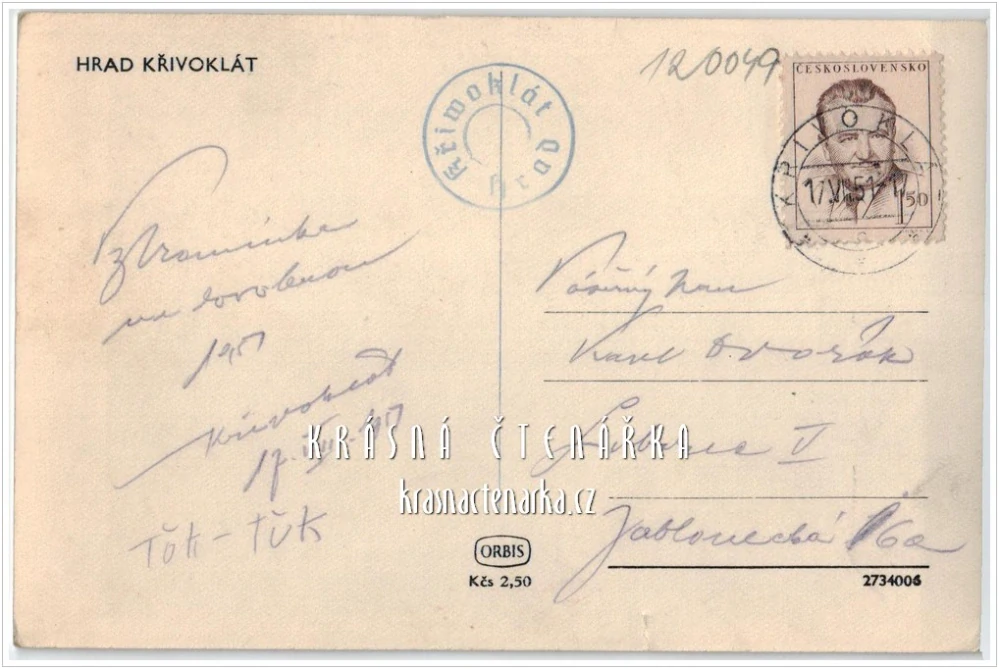 HRAD KŘIVOKLÁT
Křiwoklát
Hrad
120049
ČESKOSLOVENSKO
KŘIVOKLÁT
17.VII.51-17
1 50
Vzpomínka
na dovolenou
1951
Křivoklát
17. VII. 1951
Ťuk - Ťuk
Vážený pan
Karel Dvořák
Liberec V
Jablonecká 16a
KRÁSNÁ ČTENÁŘKA
krasnactenarka.cz
ORBIS
Kčs 2,50
2734006